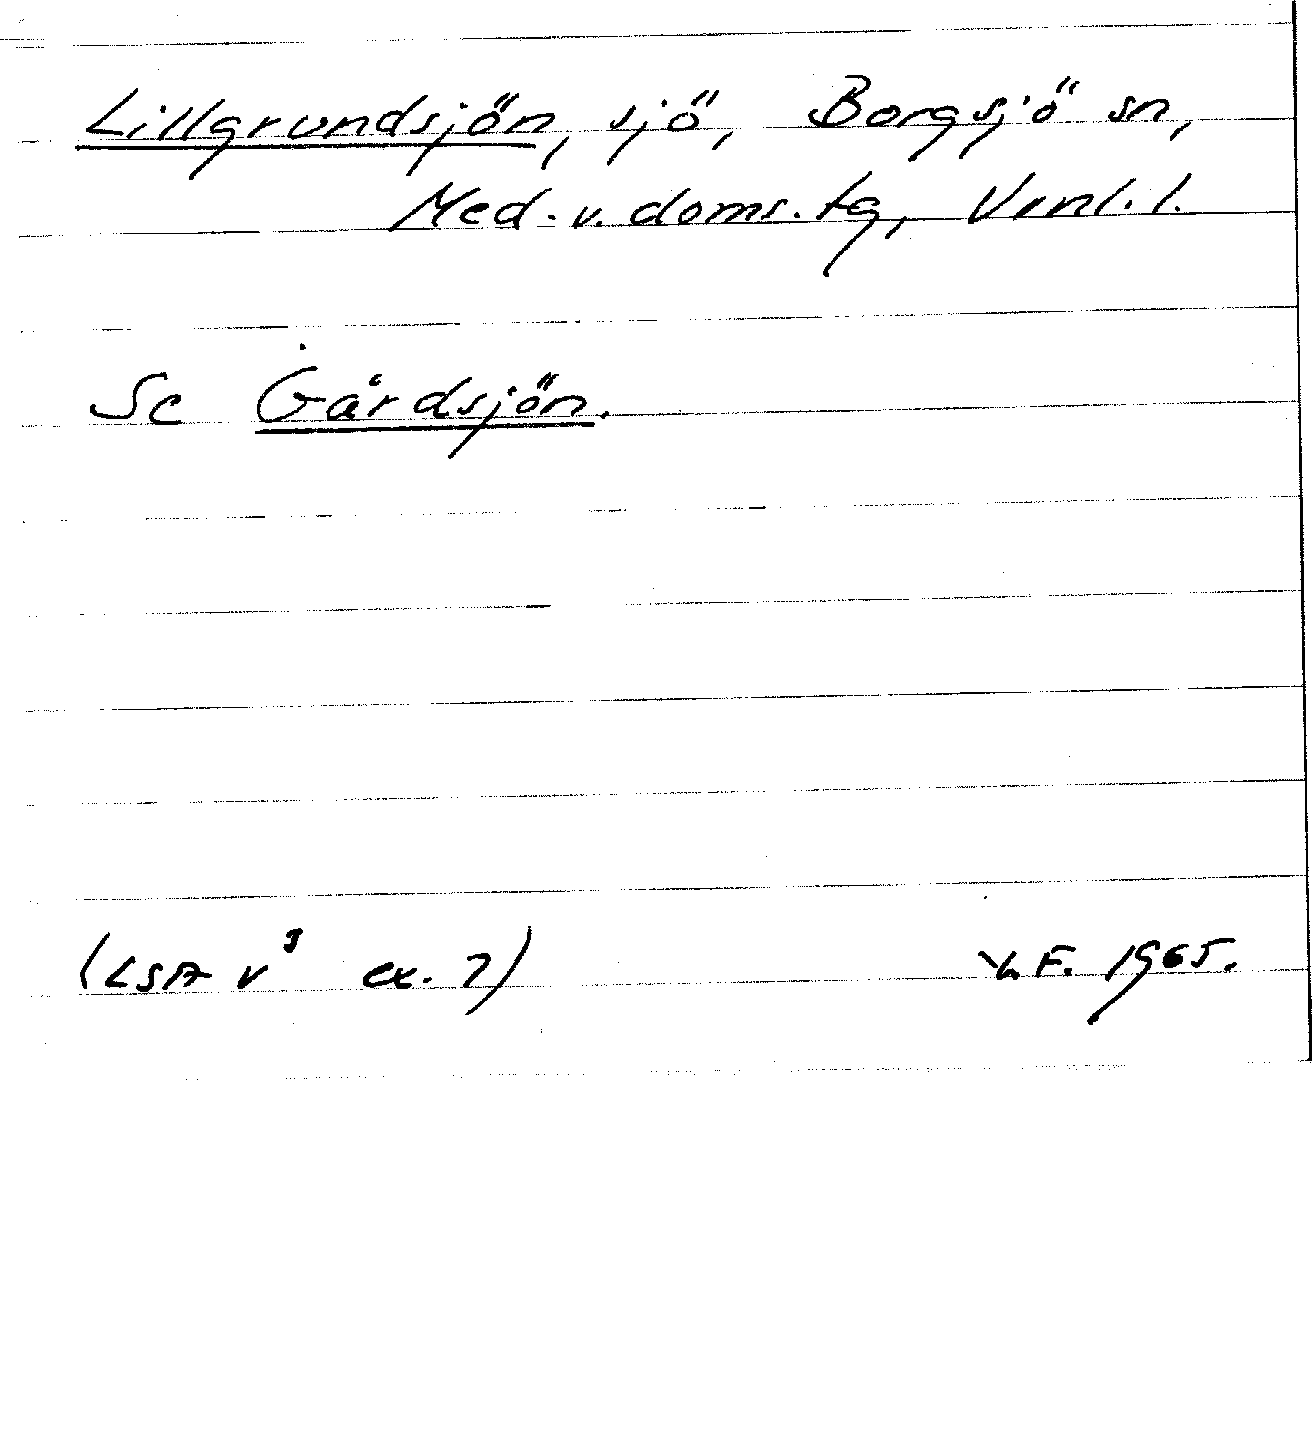 Lillgrundsjön, sjö, Borgsjö sn,
Med.v.doms.tg, Vrnl.l.
Se Gårdsjön.
(LSA v³ ex. 7)
F. 1965.